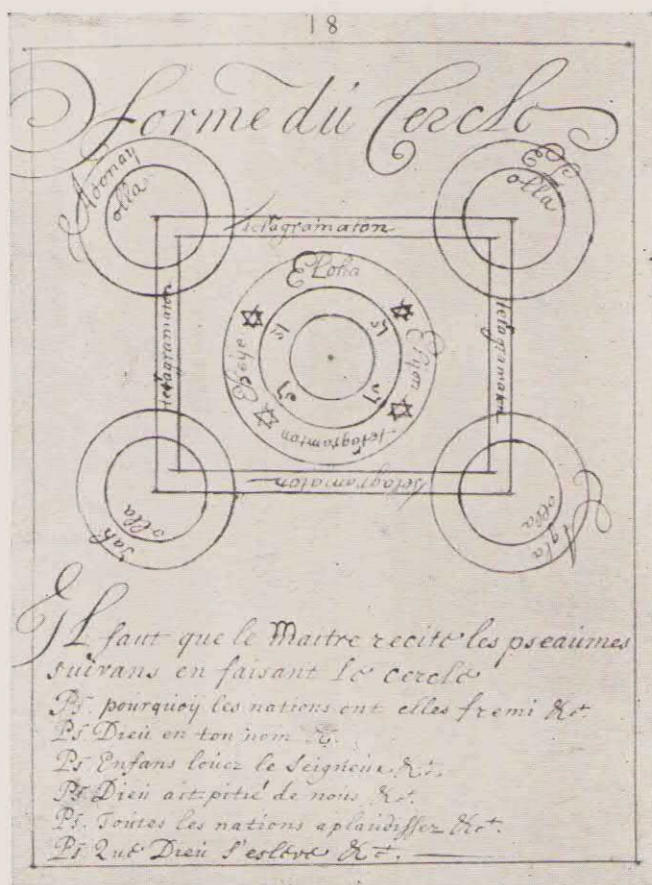 18
forme du Cercle
Adonay
olla
El
olla
tetagramaton
Eloha
Elyon
tetagramton
Eheye
tetagramaton
tetagramaton
tetagramaton
Jah
olla
Agla
olla
Il faut que le Maitre recite les pseaumes
suivans en faisant le cercle
Ps. pourquoy les nations ont elles fremi &c.
Ps Dieu en ton nom &c.
Ps Enfans loüez le Seigneur &c.
Ps. Dieu ait pitié de nous &c.
Ps. Toutes les nations aplaudissez &c.
Ps. Que Dieu s'esleve &c.